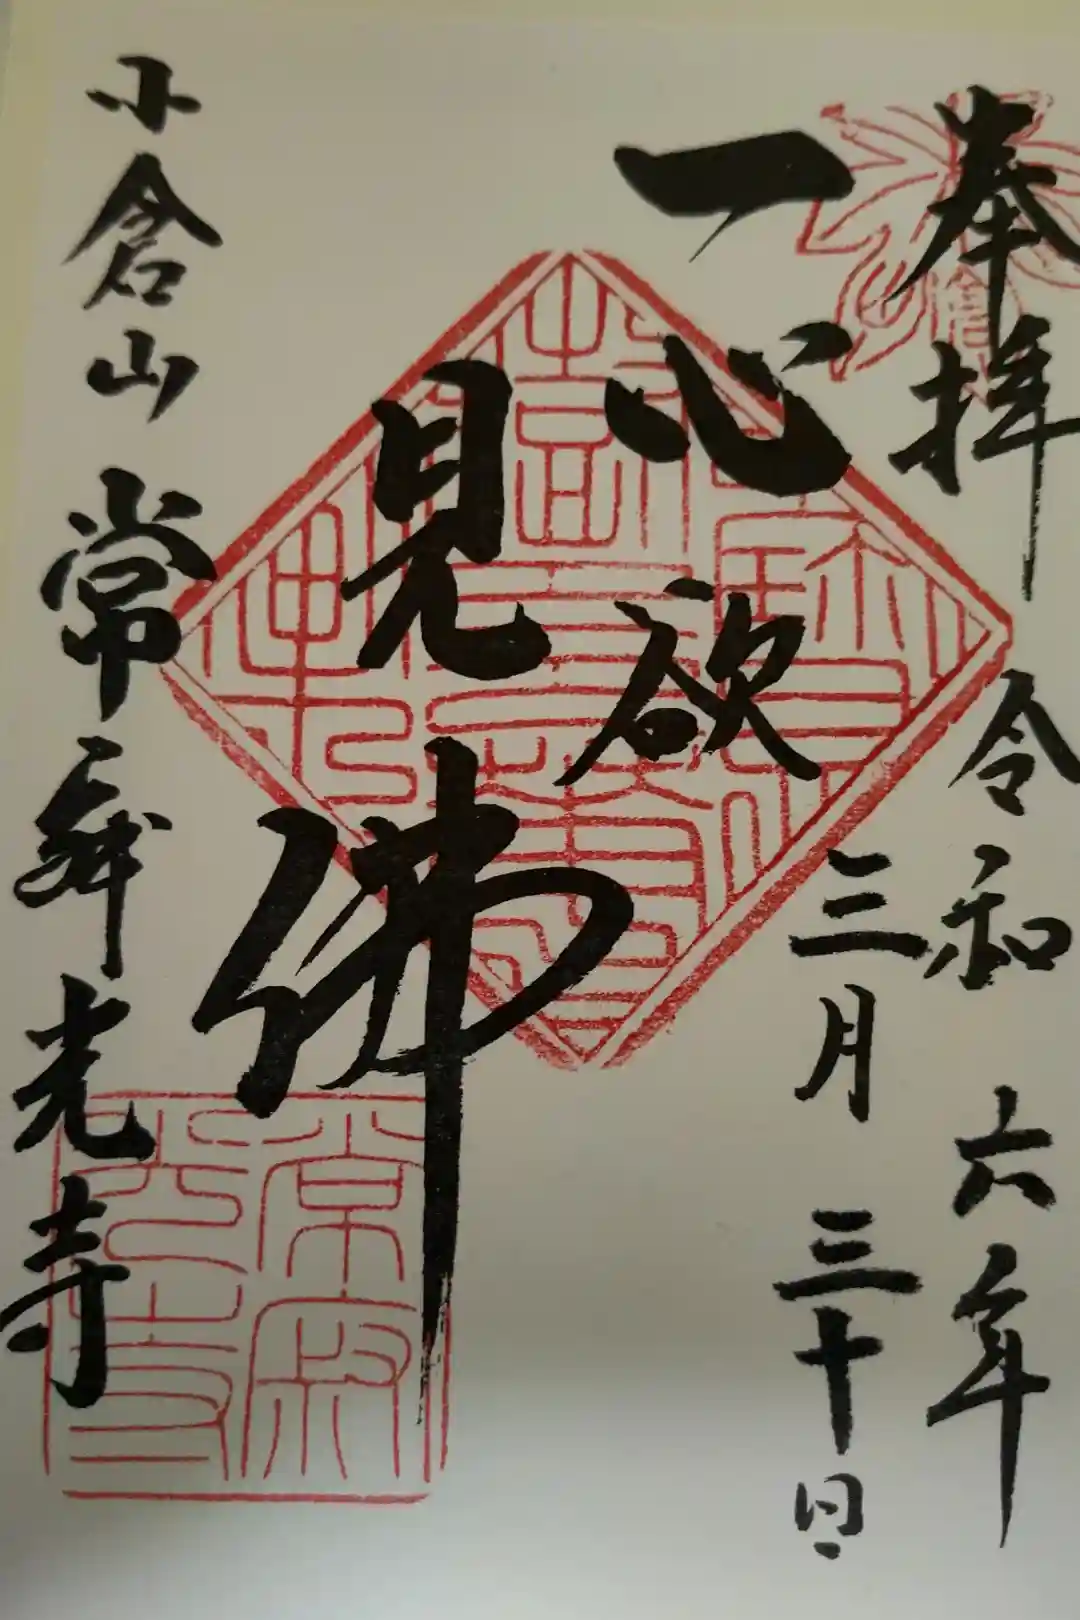 奉拝
令和六年
三月三十日
一心欲
見佛
小倉山 常寂光寺
常寂
光寺